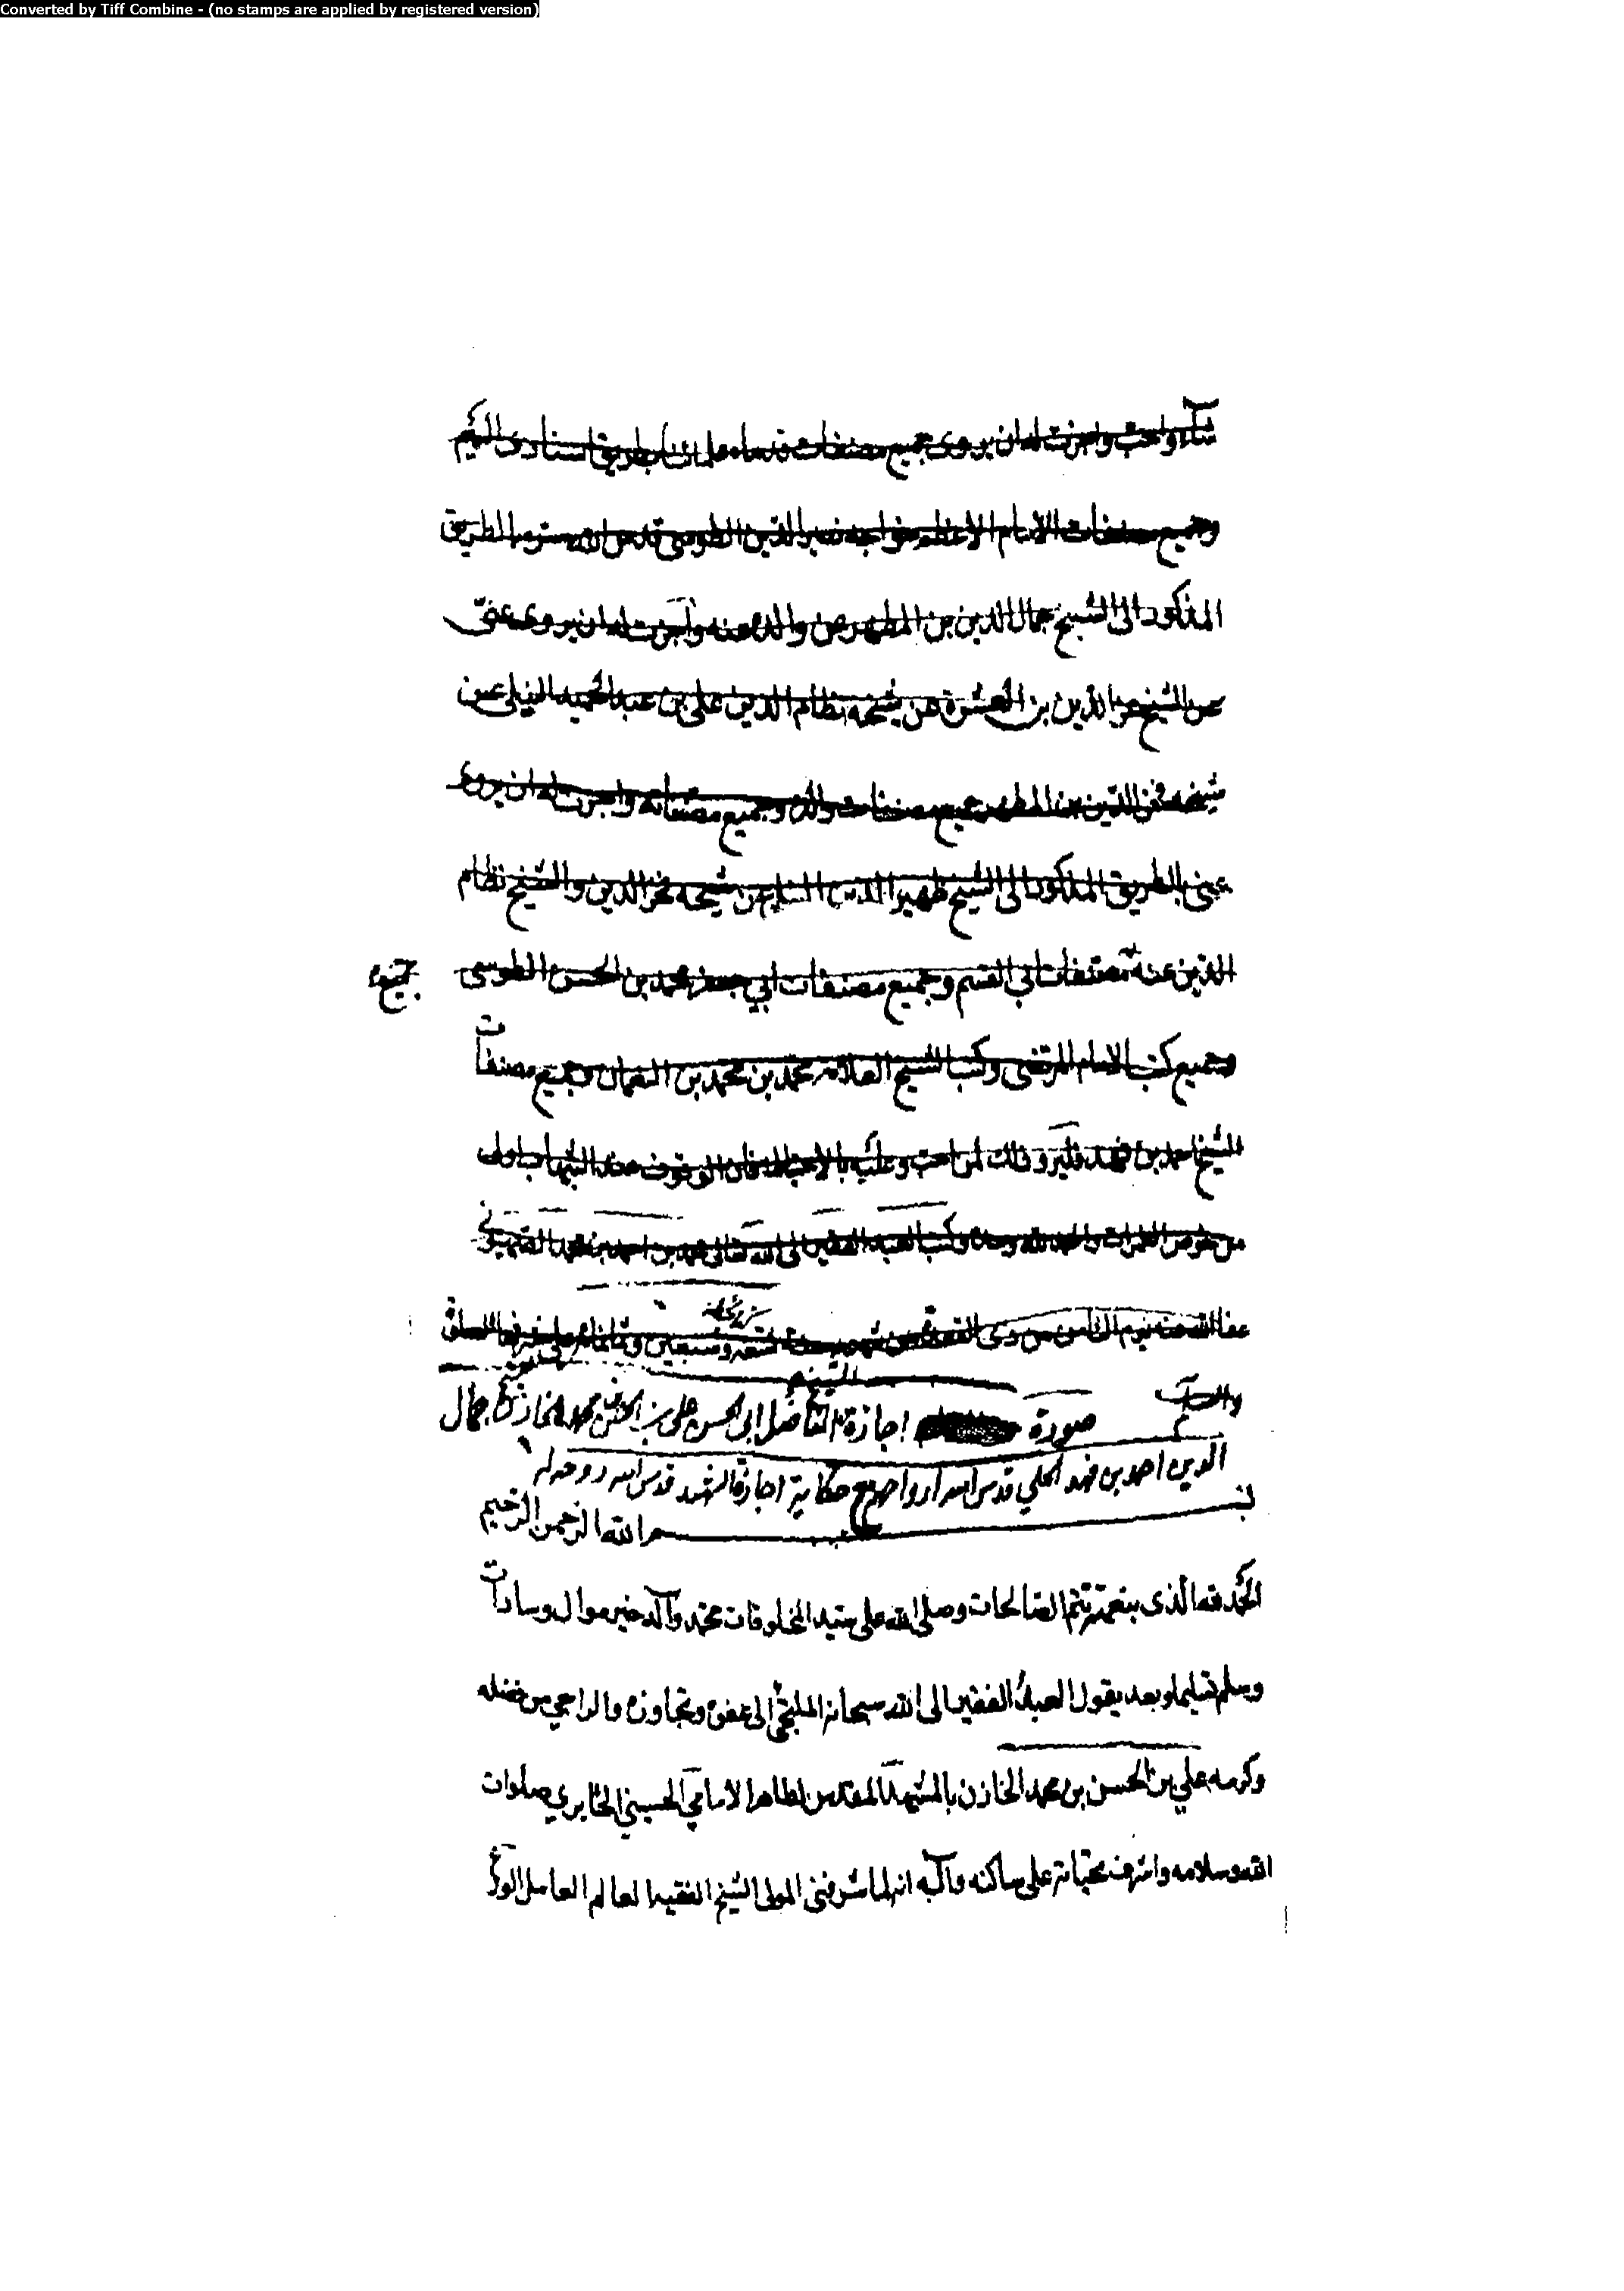 Converted by Tiff Combine - (no stamps are applied by registered version)
شاء واحب واجزت له ان يروى جميع مصنفات علمائنا بطريق اسنادى اليهم
وجميع مصنفات الامام الاعظم خواجه نصير الدين الطوسى قدس الله سره بالطريق
المذكور الى الشيخ جمال الدين بن المطهر عن والده عنه واجزت له ان يروى عنى
عن الشيخ عز الدين بن العشرة عن شيخه نظام الدين على بن عبد الحميد النيلى عن
شيخه فخر الدين بن المطهر جميع مصنفات والده وجميع مصنفاته واجزت له ان يروى
عنى بالطريق المذكور الى الشيخ ظهير الدين عن شيخه فخر الدين والشيخ نظام
الدين عنه مصنفات ابى القسم وجميع مصنفات ابي جعفر محمد بن الحسن الطوسى
جميع
وجميع كتب الامام المرتضى وكتب الشيخ العلامه محمد بن محمد بن النعمان وجميع مصنفات
الشيخ احمد بن فهد فليرو ذلك لمن احب وعليه بالاحتياط فان الوقوف عند الشبهات اولى
من خوض الغمرات والحمد لله وحده وكتب العبد الفقير الى الله تعالى محمد بن احمد بن محمد
عفا الله عنه يوم الثامن من ذى القعدة من شهور سنة تسعه وسبعين وثمانمائه على مشرفها الصلوة
والسلام
صورة اجازة الشيخ الفاضل ابى الحسن على بن الحسن بن محمد الخازن للشيخ جمال
الدين احمد بن فهد الحلي قدس الله ارواحهم مع حكاية اجازة الشهيد قدس الله روحه له
بسم الله الرحمن الرحيم
الحمد لله الذى بنعمته تتم الصالحات وصلى الله على سيد المخلوقات محمد وآله خير موال وسادات
وسلم تسليما وبعد يقول العبد الفقير الى الله سبحانه الملتجئ الى عفوه وتجاوزه والراجي من فضله
وكرمه علي بن الحسن بن محمد الخازن بالمشهد المقدس الطاهر الامامي الحسيني الحائري صلوات
الله وسلامه واشرف تحياته على ساكنه وآله انه لما شرفنى المولى الشيخ الفقيه العالم العامل الورع